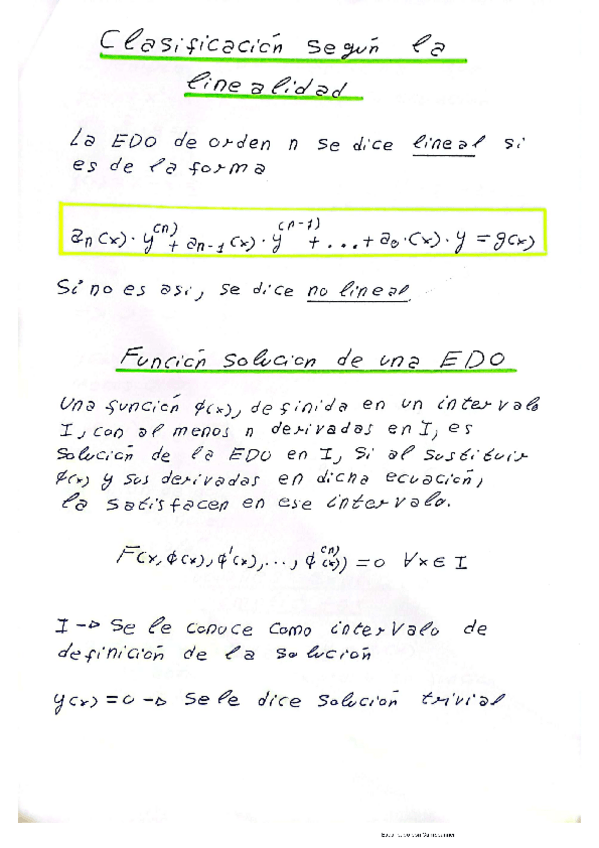 Clasificación según la
linealidad
La EDO de orden n se dice lineal si
es de la forma
an(x)·y(n) + an-1(x)·y(n-1) + ... + a0·(x)·y = g(x)
Si no es asi, se dice no lineal
Función solucion de una EDO
Una función ϕ(x), definida en un intervalo
I, con al menos n derivadas en I, es
solución de la EDO en I, si al sustituir
ϕ(x) y sus derivadas en dicha ecuación,
la satisfacen en ese intervalo.
F(x, ϕ(x), ϕ'(x), ..., ϕ(n)(x)) = 0 ∀x ∈ I
I → Se le conoce como intervalo de
definición de la solución
y(x) = 0 → se le dice solución trivial
Escaneado con CamScanner